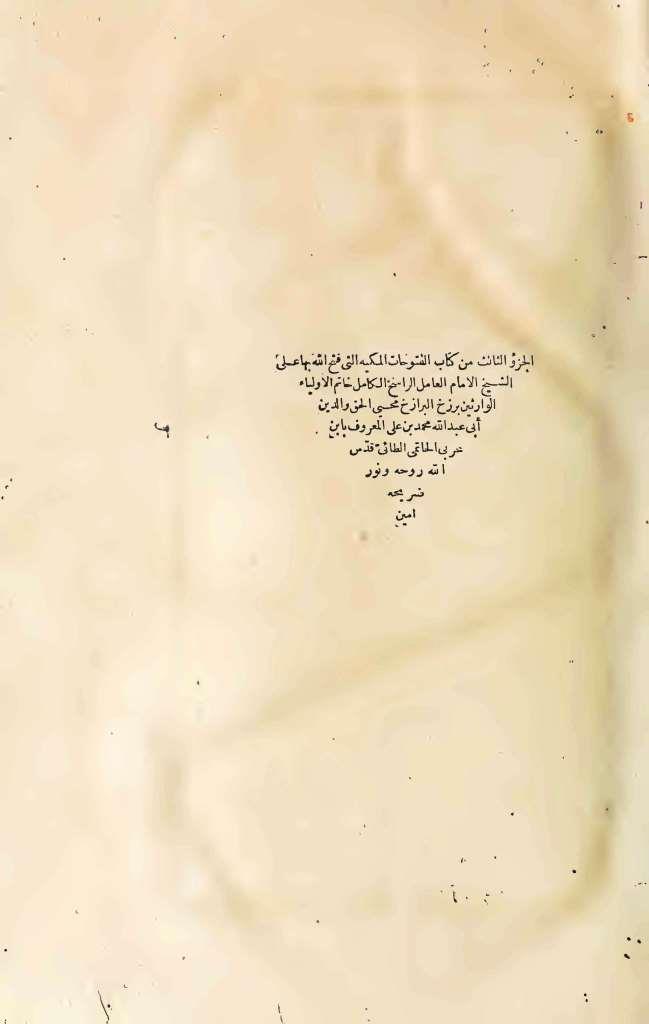 الجزؤ الثالث من كتاب الفتوحات المكيه التى فتح الله بها على
الشيخ الامام العامل الراسخ الكامل خاتم الاولياء
الوارثين برزخ البرازخ محيي الحق والدين
أبى عبدالله محمد بن على المعروف بابن
عربى الحاتمى الطائى قدّس
الله روحه ونور
ضريحه
امين